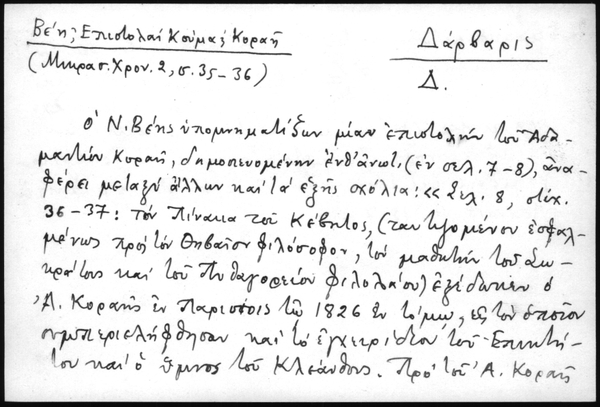 Βέη, Ἐπιστολαὶ Κούμα, Κοραῆ
(Μικρασ. Χρον. 2, σ. 35-36)
Δάρβαρις
Δ.
Ὁ Ν. Βέης ὑπομνηματίζων μίαν ἐπιστολὴν τοῦ Ἀδα-
μαντίου Κοραῆ, δημοσιευομένην ἐνθ' ἀνωτ. (ἐν σελ. 7-8), ἀνα-
φέρει μεταξὺ ἄλλων καὶ τὰ ἑξῆς σχόλια: «Σελ. 8, στίχ.
36-37: τὸν Πίνακα τοῦ Κέβητος, (ταυτιζομένου ἐσφαλ-
μένως πρὸς τὸν Θηβαῖον φιλόσοφον, τὸν μαθητὴν τοῦ Σω-
κράτους καὶ τοῦ Πυθαγορείου Φιλολάου) ἐξέδωκεν ὁ
Ἀ. Κοραῆς ἐν Παρισίοις τῷ 1826 ἐν τόμῳ, εἰς τὸν ὁποῖον
συμπεριελήφθησαν καὶ τὸ ἐγχειρίδιον τοῦ Ἐπικτή-
του καὶ ὁ ὕμνος τοῦ Κλεάνθους. Πρὸ τοῦ Ἀ. Κοραῆ